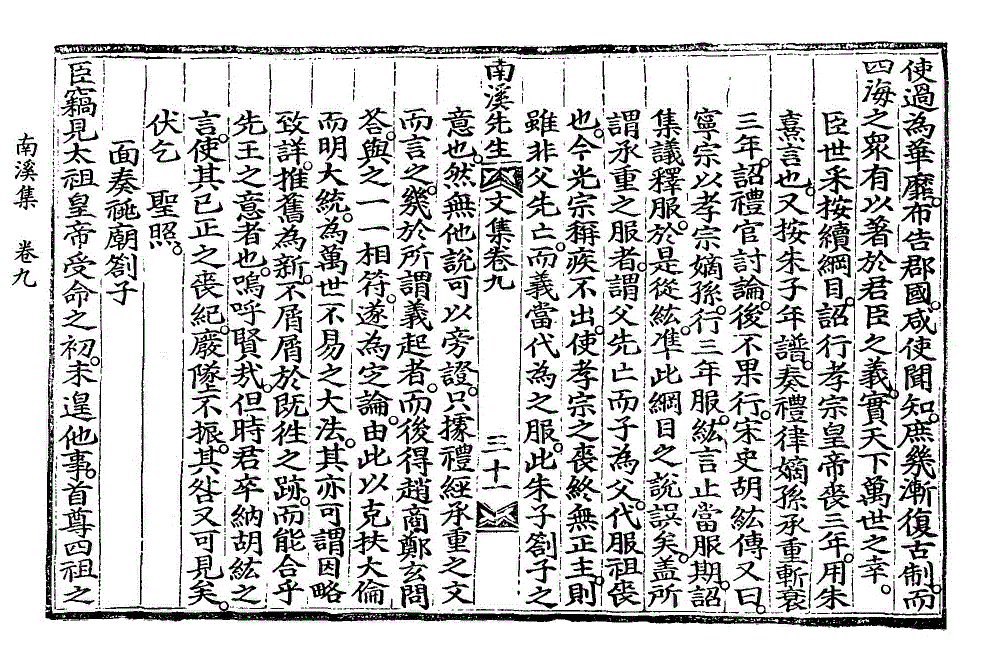 使過為華靡。布告郡國。咸使聞知。庶幾漸復古制。而
四海之眾有以著於君臣之義。實天下萬世之幸。
臣世采按續綱目。詔行孝宗皇帝喪三年。用朱
熹言也。又按朱子年譜。奏禮律嫡孫承重斬衰
三年。詔禮官討論。後不果行。宋史胡紘傳又曰。
寧宗以孝宗嫡孫。行三年服。紘言止當服期。詔
集議釋服。於是從紘。準此綱目之說誤矣。盖所
謂承重之服者。謂父先亡而子為父。代服祖喪
也。今光宗稱疾不出。使孝宗之喪終無正主。則
雖非父先亡。而義當代為之服。此朱子劄子之
南溪先生文集卷九 三十一
意也。然無他說可以旁證。只據禮經承重之文
而言之。幾於所謂義起者。而後得趙商鄭玄問
答。與之一一相符。遂為定論。由此以克扶大倫
而明大統。為萬世不易之大法。其亦可謂因略
致詳。推舊為新。不屑屑於既徃之跡。而能合乎
先王之意者也。嗚呼賢㢤。但時君卒納胡紘之
言。使其已正之喪紀。廢墜不振。其咎又可見矣。
伏乞 聖照。
面奏祧廟劄子
臣竊見太祖皇帝受命之初。未遑他事。首尊四祖之
南溪集 卷九